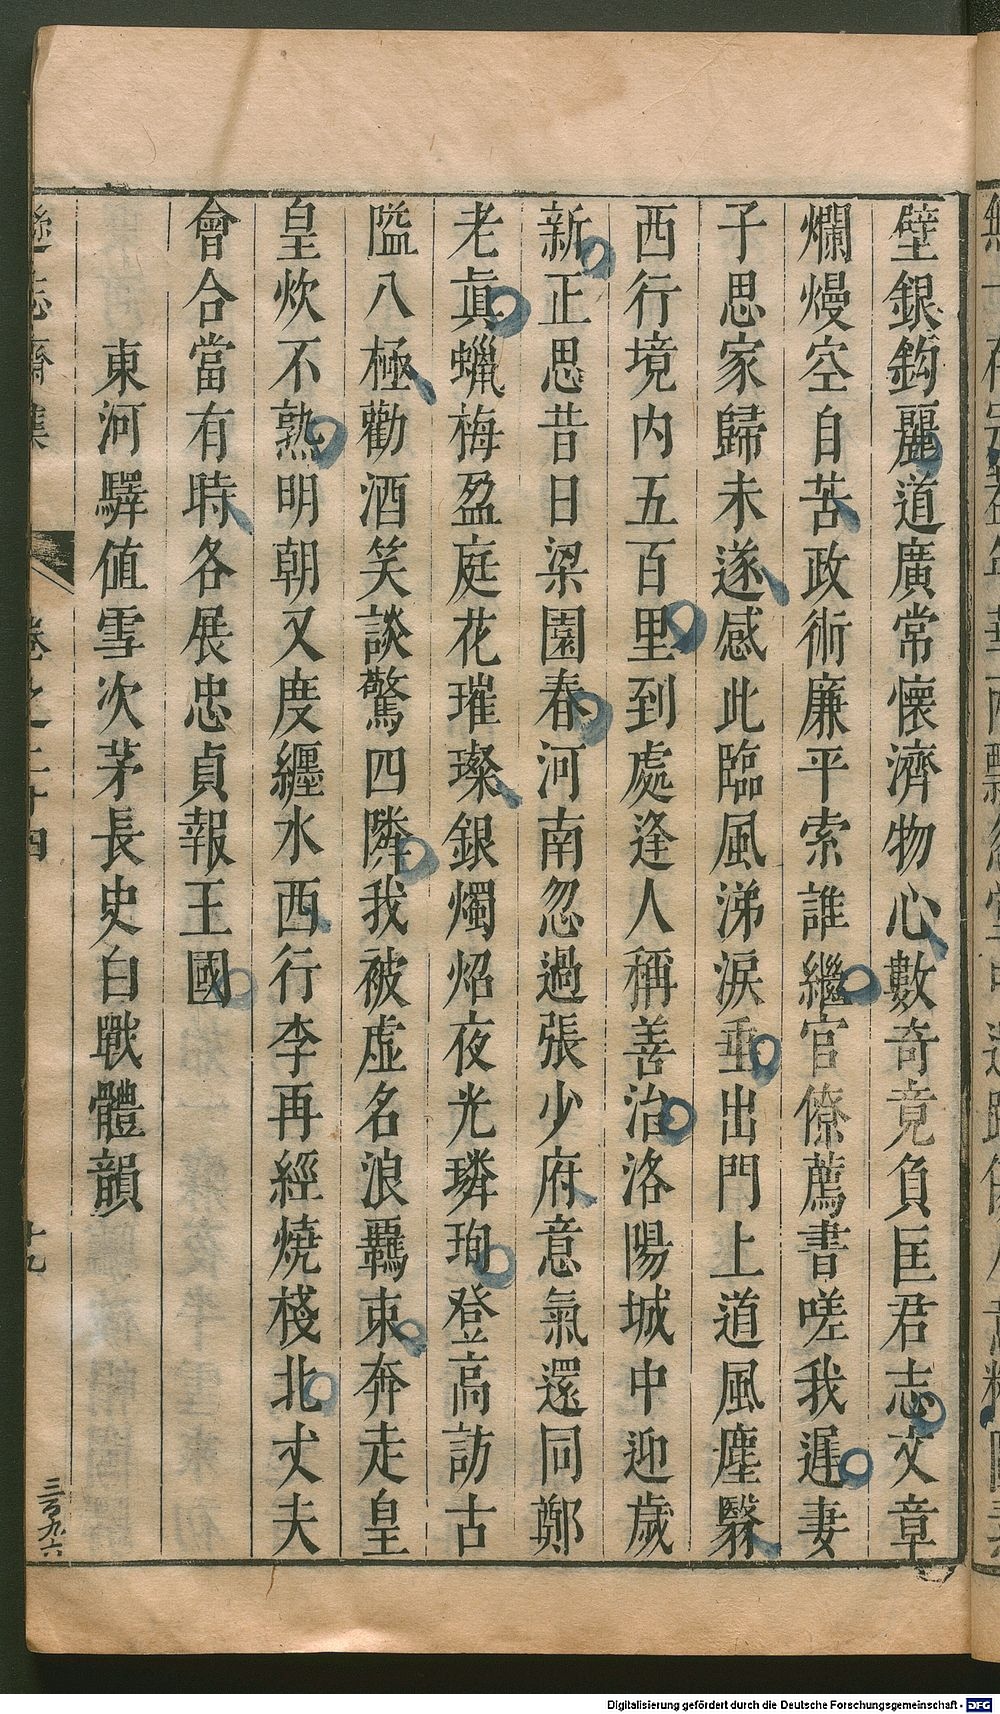 壁銀鈎麗道廣常懷濟物心數奇竟負匡君志文章
爛熳空自苦政術廉平索誰繼官僚薦書嗟我遲妻
子思家歸未遂感此臨風涕淚垂出門上道風塵翳
西行境内五百里到處逢人稱善治洛陽城中迎歲
新正思昔日梁園春河南忽過張少府意氣還同鄭
老眞蠟梅盈庭花璀璨銀燭炤夜光璘珣登高訪古
隘八極勸酒笑談驚四隣我被虛名浪羈束奔走皇
皇炊不熟明朝又度纏水西行李再經燒棧北丈夫
會合當有時各展忠貞報王國
東河驛値雪次茅長史白戰體韻
遜志齋集
卷之二十四
十九
三百九六
Digitalisierung gefördert durch die Deutsche Forschungsgemeinschaft - DFG